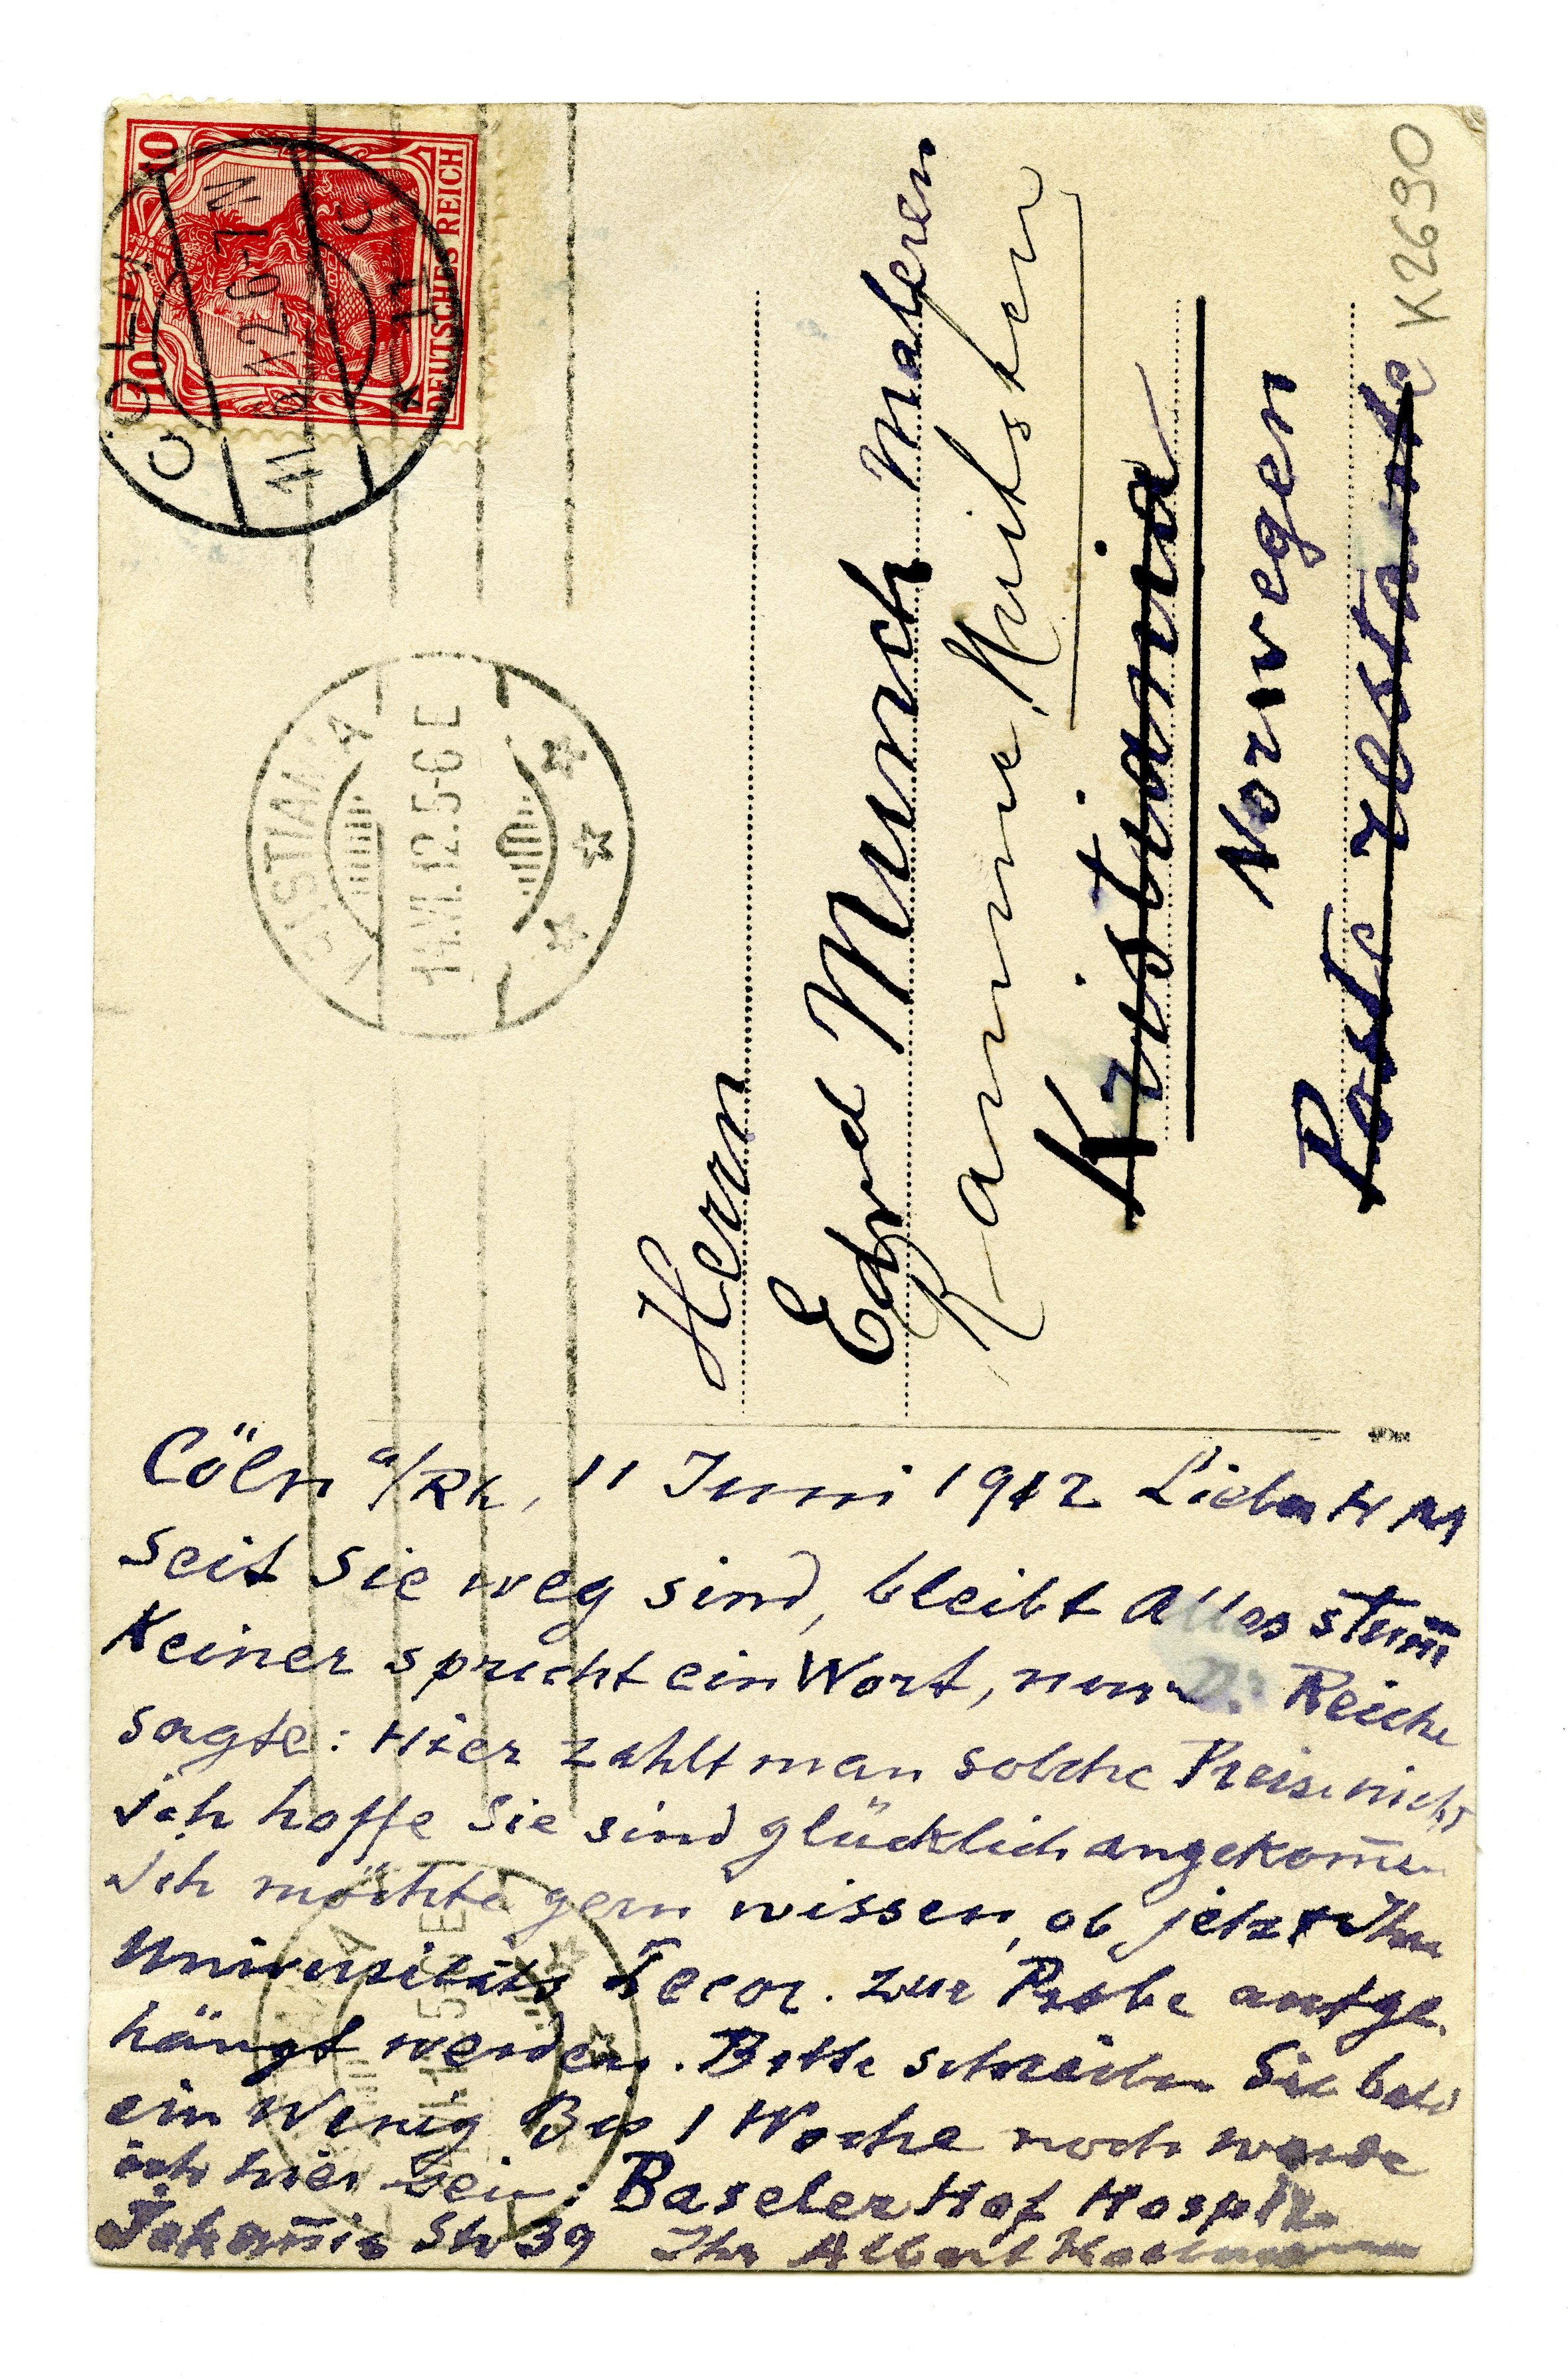 K2690
DEUTSCHES REICH
10 10
CÖLN
11.6.12.6-7N
KRISTIANIA
14.VI.12.5-6E
Herrn
Edvd Munch Maleren
Kristiania
Norwegen
Poste restante
Cöln a/Rh, 11 Juni 1912 Lieber H M
seit Sie weg sind, bleibt Alles stum̄
Keiner spricht ein Wort, nur Dr Reiche
sagte: Hier zahlt man solche Preise nicht
ich hoffe Sie sind glücklich angekom̄en
ich möchte gern wissen, ob jetzt Ihre
Universitäts Decor. zur Probe aufge-
hängt werden. Bitte schreiben Sie bald
ein Wenig Bis 1 Woche noch werde
ich hier sein: Baseler Hof Hospiz
Johan̄is Str 39 Ihr Albert Kollmann